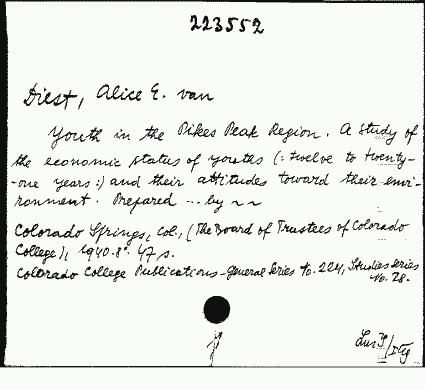 223552
Diest, Alice E. van
Youth in the Pikes Peak Region. A study of
the economic status of youths (: twelve to twenty-
-one years :) and their attitudes toward their envi-
ronment. Prepared ... by ~ ~
Colorado Springs, Col., (The Board of Trustees of Colorado
College), 1940. 8°. 47 s.
Colorado College Publications - General Series No. 224, Studies Series
No. 28.